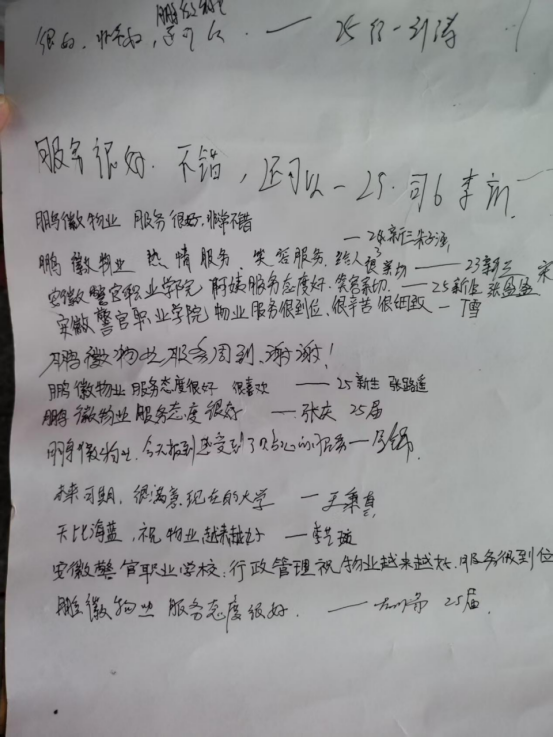 很好,非常好,还可以.——25
服务很好.不错,还可以—25.司6李
鹏徽物业 服务很好,非常不错
鹏徽物业 热情服务,笑容服务,给人很亲切——23新
安徽警官职业学院 服务态度好,笑容亲切.——25新生 张圆圆
安徽警官职业学院,物业服务很到位,很辛苦很细致—丁雪
鹏徽物业服务周到,谢谢!
鹏徽物业 服务态度很好 很喜欢——25新生 张路遥
鹏徽物业服务态度很好——张庆 25届
鹏徽物业,今天报到感受到了贴心的服务—
未来可期,很满意现在的大学—王秉
天比海蓝,祝物业越来越好—李
安徽警官职业学校.行政管理祝物业越来越好.服务很到位
鹏徽物业 服务态度很好.—— 25届